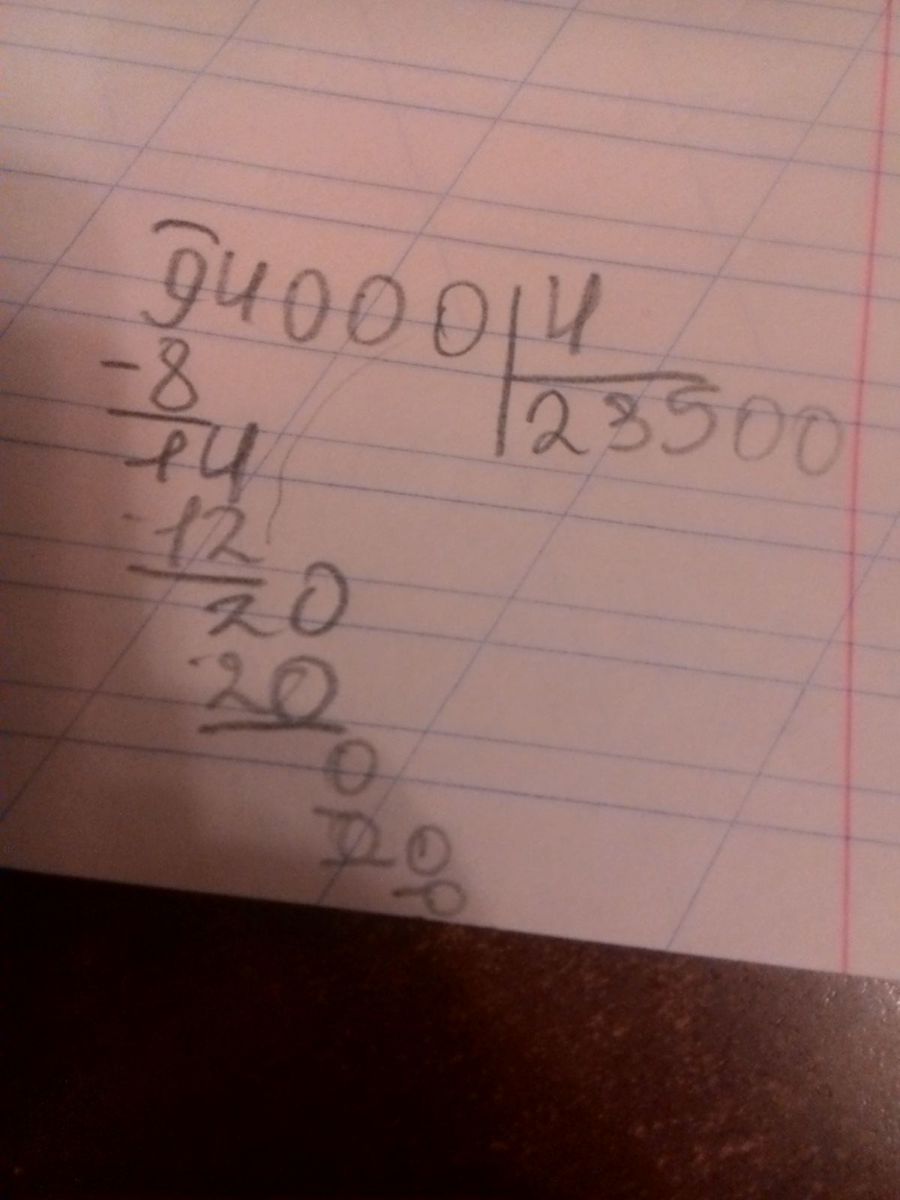 94000 4
-8 23500
14
-12
20
-20
0
0 0
0